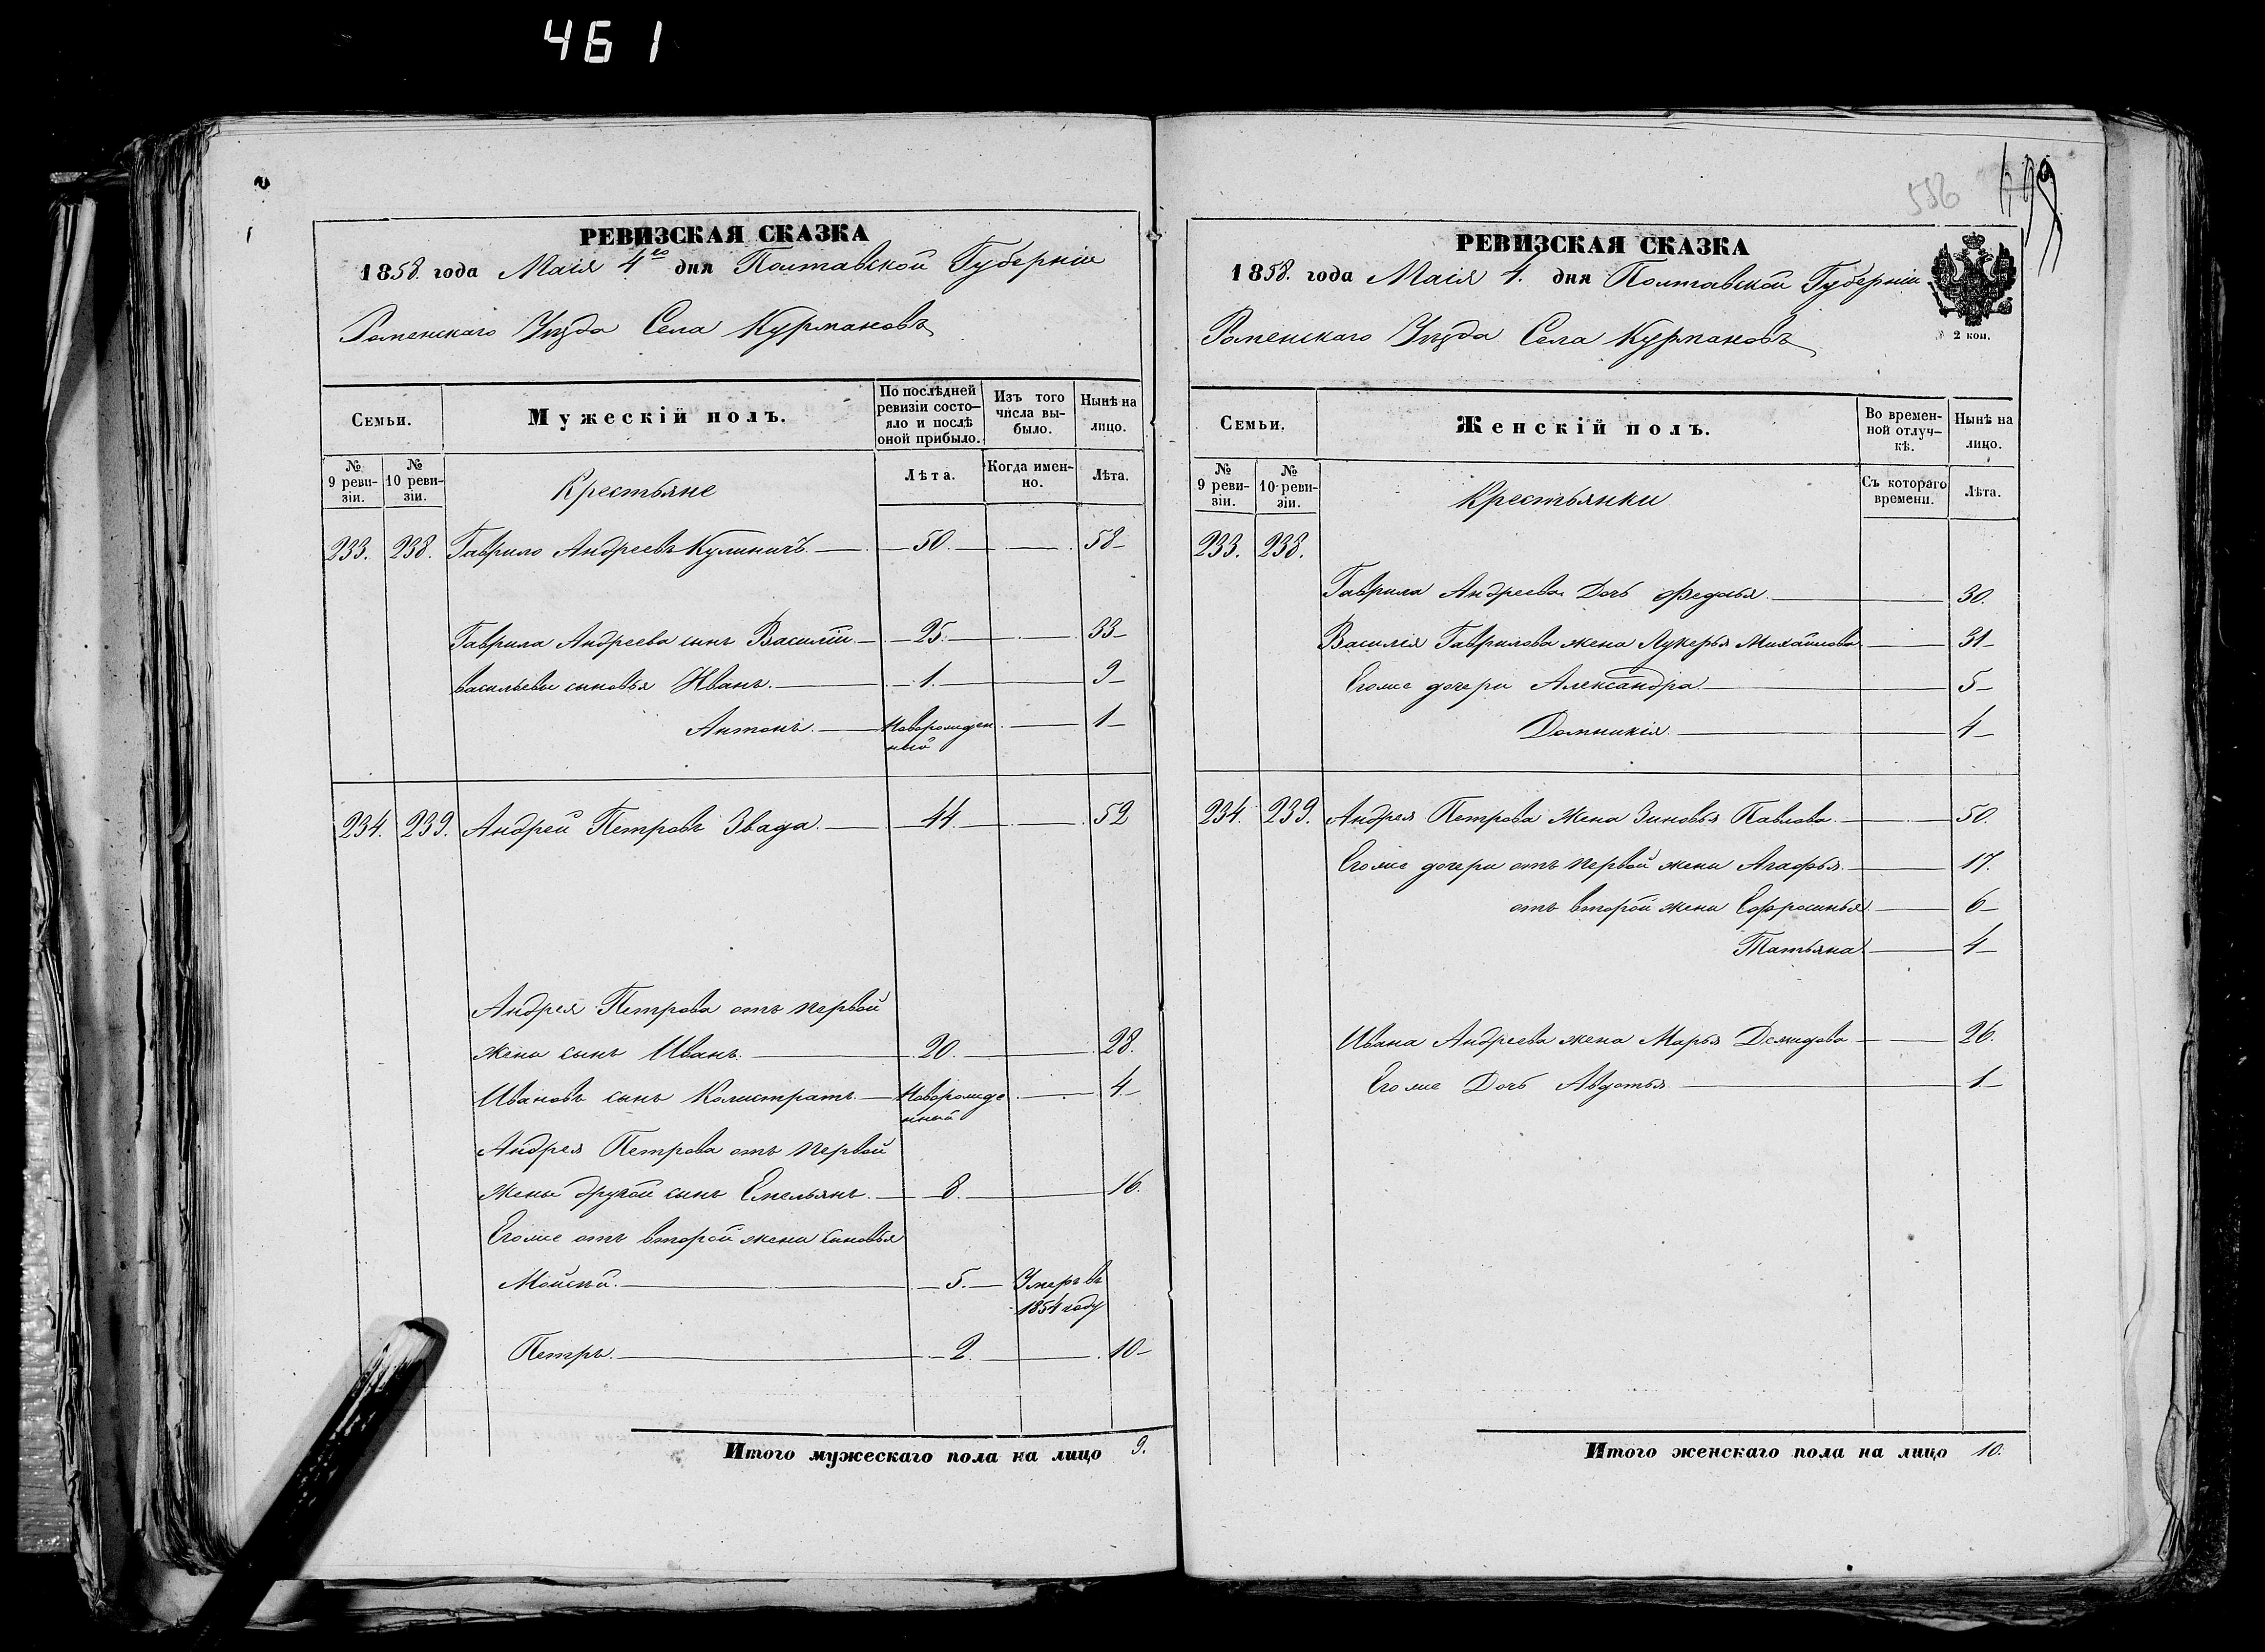 461
РЕВИЗСКАЯ СКАЗКА
1858. года Маія 4го дня Полтавской Губерніи
Роменскаго Уѣзда Села Курмановъ
Семьи.
Мужескій полъ.
По послѣдней ревизіи состояло и послѣ оной прибыло.
Изъ того числа выбыло.
Нынѣ на лицо.
№ 9 ревизіи.
№ 10 ревизіи.
Крестьяне
Лѣта.
Когда именно.
Лѣта.
233. 238. Гаврило Андреевъ Кулиничъ. 50. 58
Гаврила Андреева сынъ Василій 25. 33
Васильевы сыновья Иванъ. 1. 9
Антонъ. Новорожден 1
ный
234. 239. Андрей Петровъ Звада. 44. 52
Андрея Петрова отъ первой
жены сынъ Иванъ. 20. 28.
Ивановъ сынъ Калистратъ. Новорожде 4
нный
Андрея Петрова отъ первой
жены другой сынъ Емельянъ. 8. 16.
Егоже отъ второй жены сыновья
Мойсѣй. 5. Умеръ въ
1854 году
Петръ. 2. 10
Итого мужескаго пола на лицо 9.
556
РЕВИЗСКАЯ СКАЗКА
1858. года Маія 4. дня Полтавской Губерніи
Роменскаго Уѣзда Села Курмановъ
2 коп.
Семьи.
Женскій полъ.
Во временной отлучкѣ.
Нынѣ на лицо.
№ 9 ревизіи.
№ 10 ревизіи.
Крестьянки
Съ котораго времени.
Лѣта.
233. 238.
Гаврила Андреева Дочь Федосья. 30.
Василія Гаврилова жена Лукерья Михайлова 31
Егоже дочери Александра. 5
Домникія. 4
234. 239. Андрея Петрова Жена Зиновья Павлова. 50.
Егоже дочери отъ первой жены Агафья. 17.
отъ второй жены Ефросинья. 6
Татьяна. 4
Ивана Андреева жена Марья Демидова 26.
Егоже Дочь Авдотья. 1
Итого женскаго пола на лицо 10.